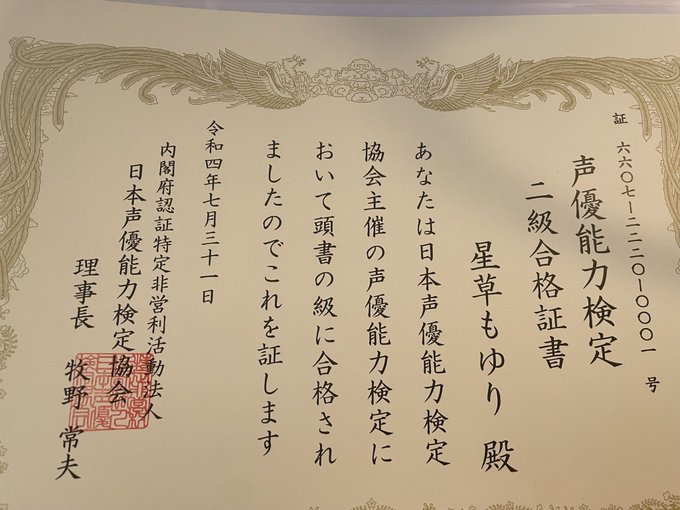 証 六六〇七ー二二二〇ー〇〇〇一 号
声優能力検定
二級合格証書
星草もゆり 殿
あなたは日本声優能力検定
協会主催の声優能力検定に
おいて頭書の級に合格され
ましたのでこれを証します
令和四年七月三十一日
内閣府認証特定非営利活動法人
日本声優能力検定協会
理事長 牧野 常夫